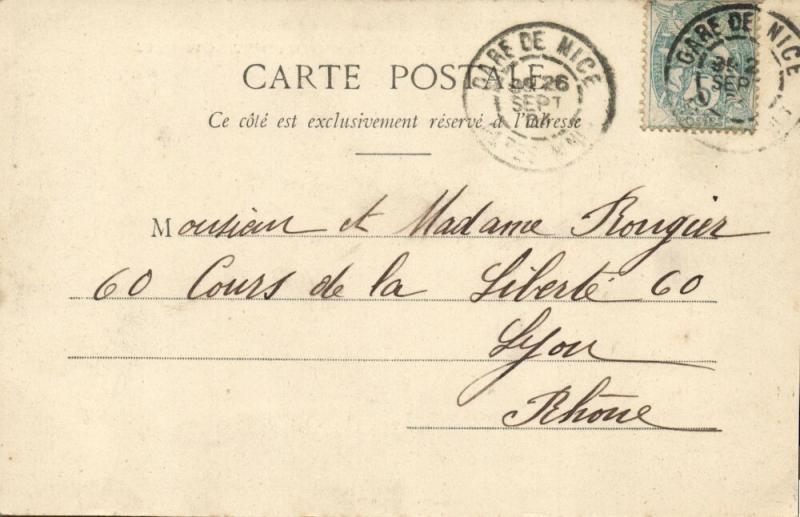 CARTE POSTALE
Ce côté est exclusivement réservé à l'adresse
GARE DE NICE
26
SEPT
GARE DE NICE
SEP
5
Monsieur et Madame Rougier
60 Cours de la Liberté 60
Lyon
Rhône